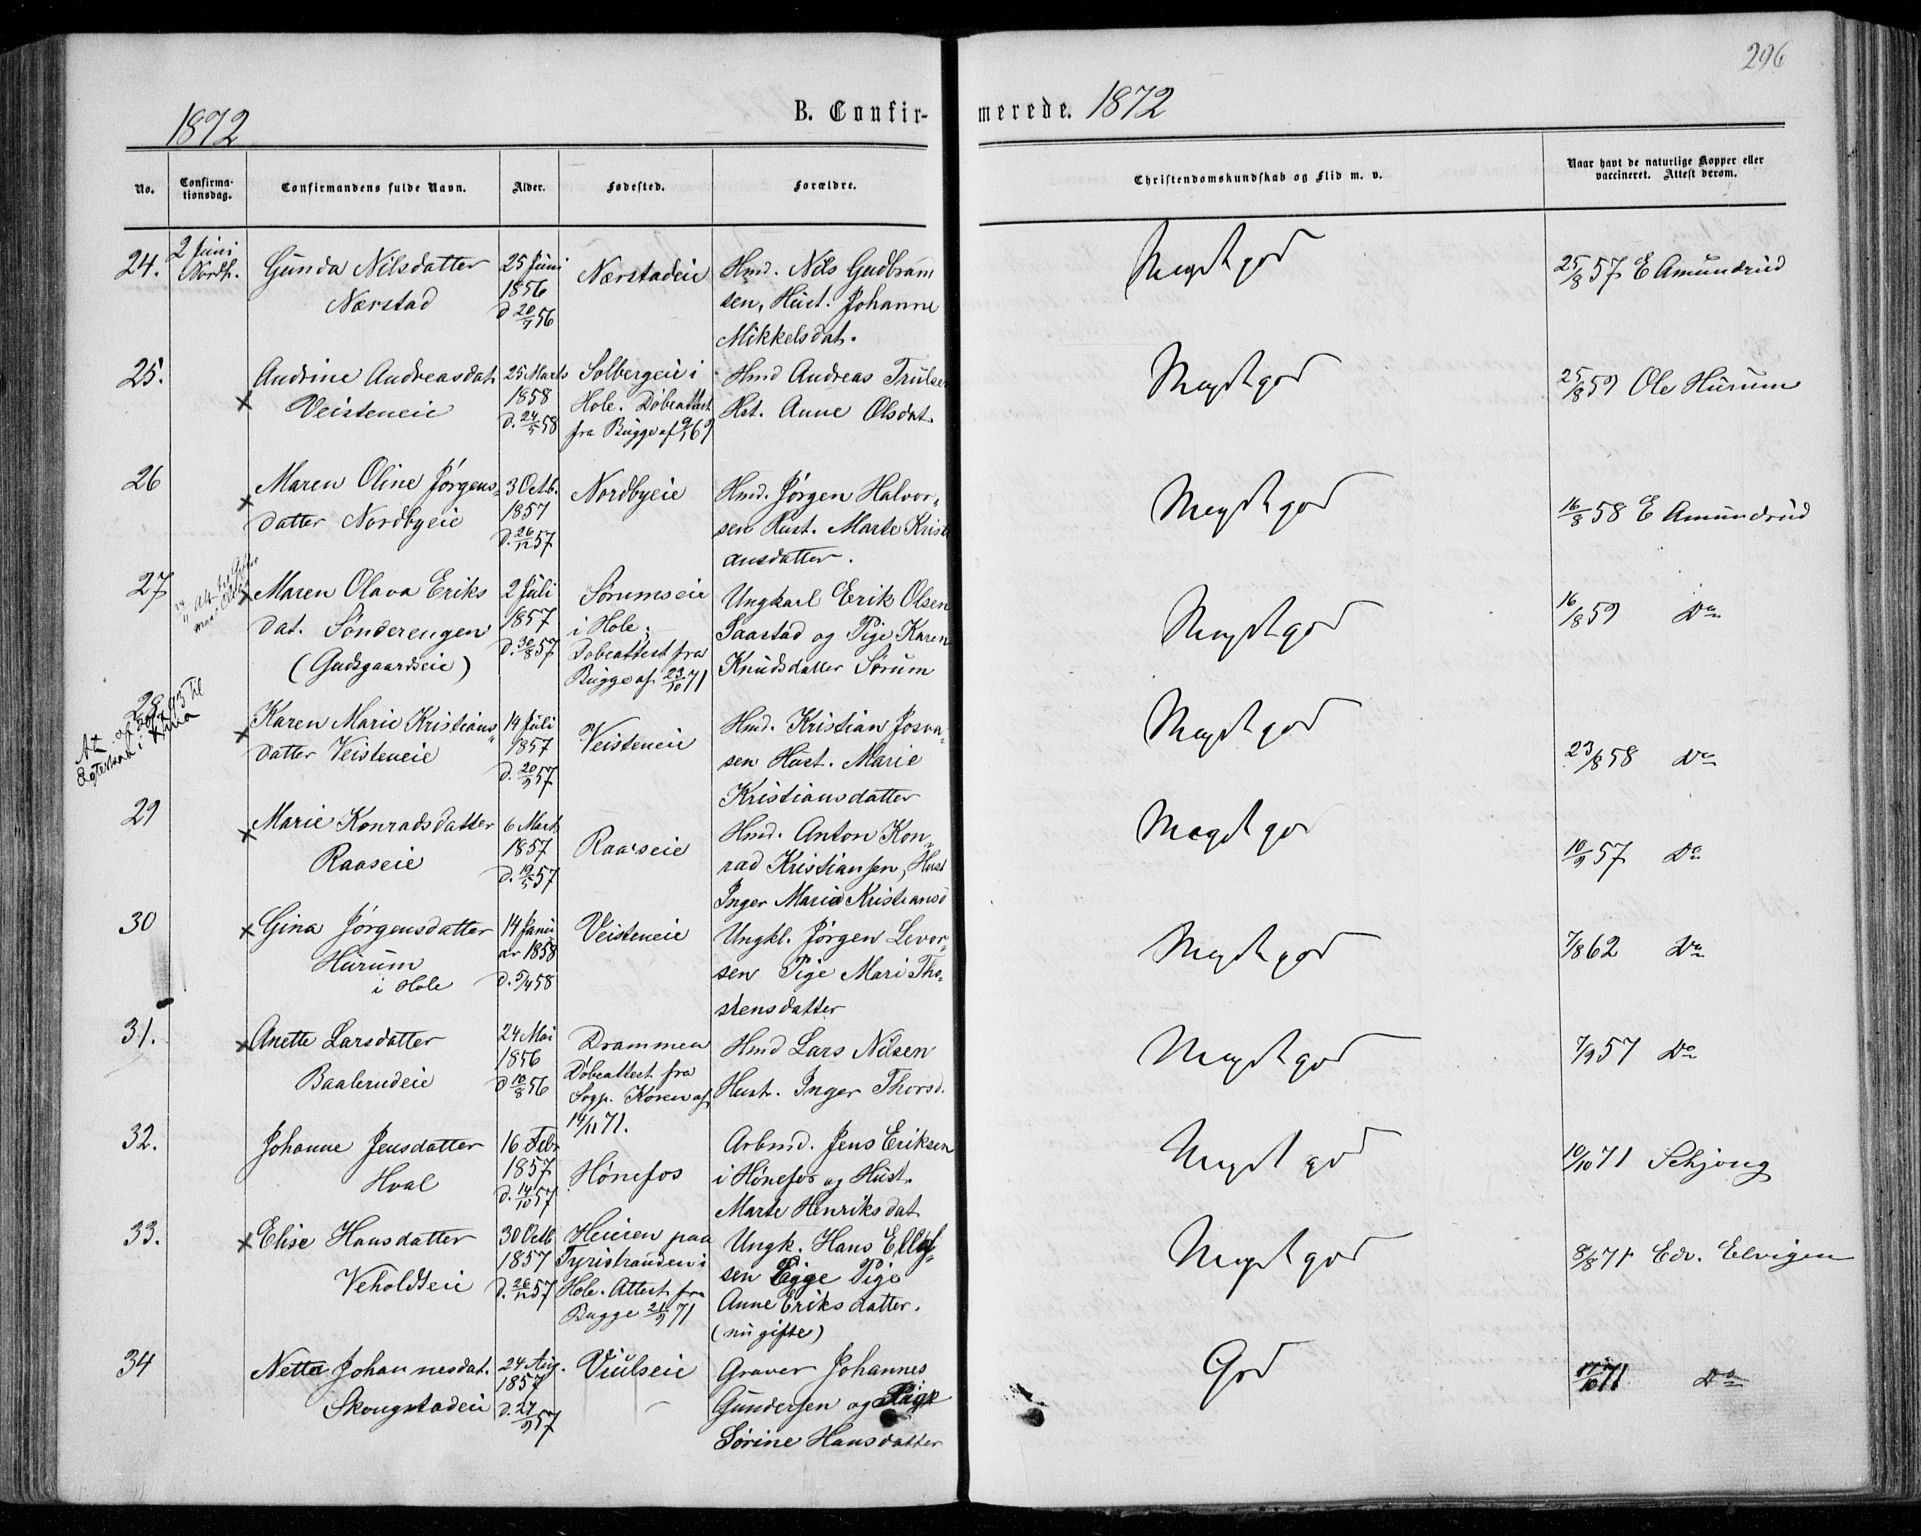 296
1872
B. Confir-
merede. 1872
No.
Confirma-
tionsdag.
Confirmandens fulde Navn.
Alder.
Fødested.
Forældre.
Christendomskundskab og Flid m. v.
Naar havt de naturlige Kopper eller
vaccineret. Attest derom.
24.
2 Juni
Nordh.
Gunda Nilsdatter
Nærstad
25 Juni
1856
d. 20/7 56
Nærstadeie
Hmd. Nils Gudbrand
sen, Hust. Johanne
Mikkelsdat.
Megetgod
25/8 57 E Amundrud
25.
Andrine Andreasdat.
× Veisteneie
25 Marts
1858
d. 24/5 58
Solbergeie i
Hole. Døbeattest
fra Bugge af 69
Hmd Andreas Trulsen
Hst. Anne Olsdat.
Megetgod
25/8 59 Ole Hurum
26
× Maren Oline Jørgens-
datter Nordbyeie
3 Octb.
1857
d. 26/12 57
Nordbyeie
Hmd. Jørgen Halvor-
sen Hust. Marte Kristi
ansdatter.
Megetgod
16/8 58 E Amundrud
27
× Maren Olava Eriks
dat. Sønderengen
(Gudsgaardseie)
2 Juli
1857
d. 30/8 57
Sørumseie
i Hole.
Døbeattest fra
Bugge af 23/10 71
Ungkarl Erik Olsen
Saastad og Pige Karen
Knudsdatter Sørum
Megetgod
16/8 59 Do
28
At
Egteskab i Kria
× Karen Marie Kristians-
datter Veisteneie
14 Juli
1857
d. 20/9 57
Veisteneie
Hmd. Kristian Josva-
sen Hust. Marie
Kristiansdatter
Megetgod
23/8 58 Do
29
× Marie Konradsdatter
Raaseie
6 Mart
1857
d. 10/5 57
Raaseie
Hmd. Anton Kon-
rad Kristiansen, Hust
Inger Maria Kristiansd
Megetgod
10/9 57 Do
30
× Gina Jørgensdatter
Hurum
i Hole
14 Janu
ar 1858
d. 5/4 58
Veisteneie
Ungkl. Jørgen Levor-
sen Pige Mari Tho-
stensdatter
Megetgod
7/8 62 Do
31.
× Anette Larsdatter
Baalerudeie
24 Mai
1856
d 10/8 56
Drammen
Døbeattest fra
Sogp. Koren af
14/11 71.
Hmd Lars Nilsen
Hust. Inger Thorsd.
Megetgod
7/9 57 Do
32.
Johanne Jensdatter
Hval
16 Febr
1857
d. 14/10 57
Hønefos
Arbmd. Jens Eriksen
i Hønefos og Hust.
Marte Henriksdat.
Meget god
10/10 71 Schjong
33.
× Elise Hansdatter
Veholdteie
30 Octb
1857
d. 26/12 57
Heieren paa
Tyristranden i
Hole. Attest fra
Bugge 21/9 71
Ungk. Hans Ellef-
sen Egge Pige
Anne Eriksdatter.
(nu gifte)
Megetgod
8/8 71 Edv. Elvigen
34
Netta Johannesdat.
Skougstadeie
24 Aug.
1857
d. 27/9 57
Viulseie
Graver Johannes
Gundersen og Pige
Sørine Hansdatter
God
17/10 71 Do